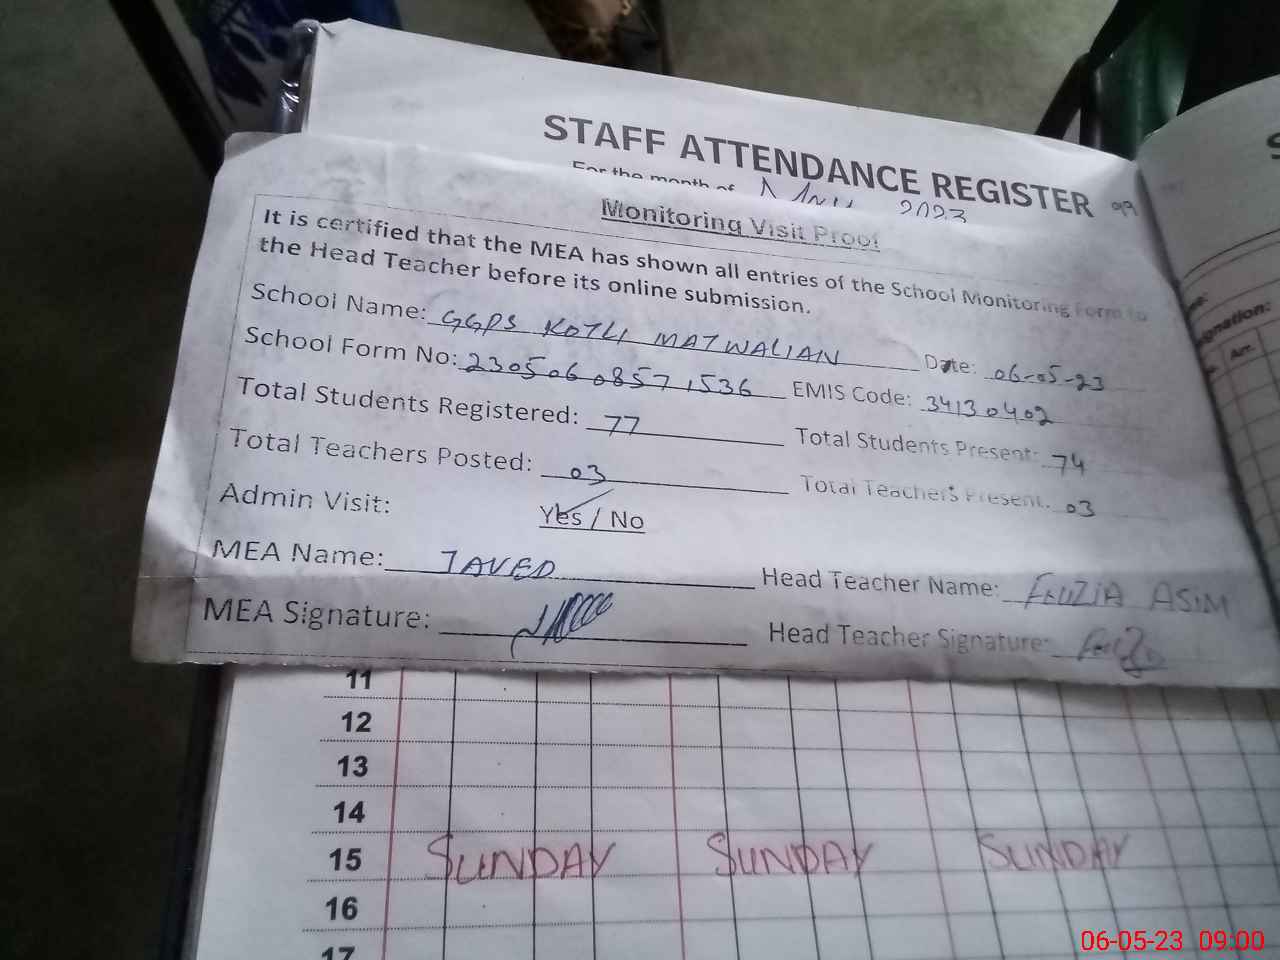 STAFF ATTENDANCE REGISTER 99
For the month of May 2023
Monitoring Visit Proof
It is certified that the MEA has shown all entries of the School Monitoring Form to
the Head Teacher before its online submission.
School Name: GGPS KOTLI MATWALIAN Date: 06-05-23
School Form No: 23050608571536 EMIS Code: 34130402
Total Students Registered: 77 Total Students Present: 74
Total Teachers Posted: 03 Total Teachers Present: 03
Admin Visit: Yes / No
MEA Name: JAVED Head Teacher Name: FAUZIA ASIM
MEA Signature: Head Teacher Signature:
11
12
13
14
15 SUNDAY SUNDAY SUNDAY
16
17
Arr.
06-05-23 09:00